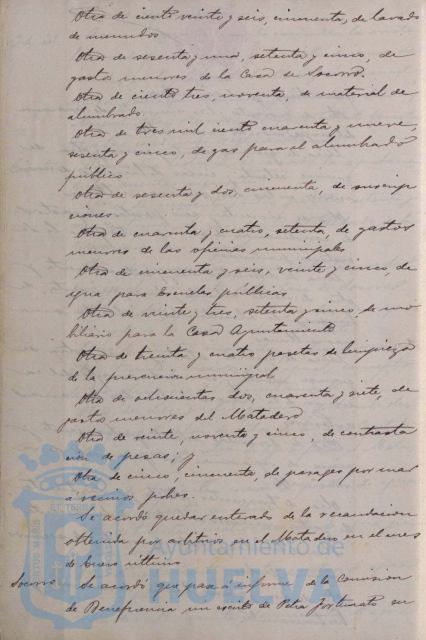 Otra de ciento veinte y seis, cincuenta, de lavado
de menudos
Otra de sesenta y una, setenta y cinco, de
gastos menores de la Casa de Socorro.
Otra de ciento tres, noventa, de material de
alumbrado
Otra de tres mil ciento cuarenta y nueve,
sesenta y cinco, de gas para el alumbrado
público
Otra de sesenta y dos, cincuenta, de suscrip
ciones
Otra de cuarenta y cuatro, setenta, de gastos
menores de las oficinas municipales
Otra de cincuenta y seis, veinte y cinco, de
agua para Escuelas públicas
Otra de veinte y tres, setenta y cinco, de mo
biliario para la Casa Ayuntamiento
Otra de treinta y cuatro pesetas de limpieza
de la prevencion municipal
Otra de ochocientas dos, cuarenta y siete, de
gastos menores del Matadero
Otra de veinte, noventa y cinco, de contrasta
cion de pesas; y
Otra de cinco, cincuenta, de pasages por mar
á vecinos pobres.
Se acordó quedar enterado de la recaudacion
obtenida por arbitrios en el Matadero en el mes
de Enero último
Socorro Se acordó que pase á informe de la Comision
de Beneficencia un escrito de Petra Fortunato su
Ayuntamiento de
HUELVA